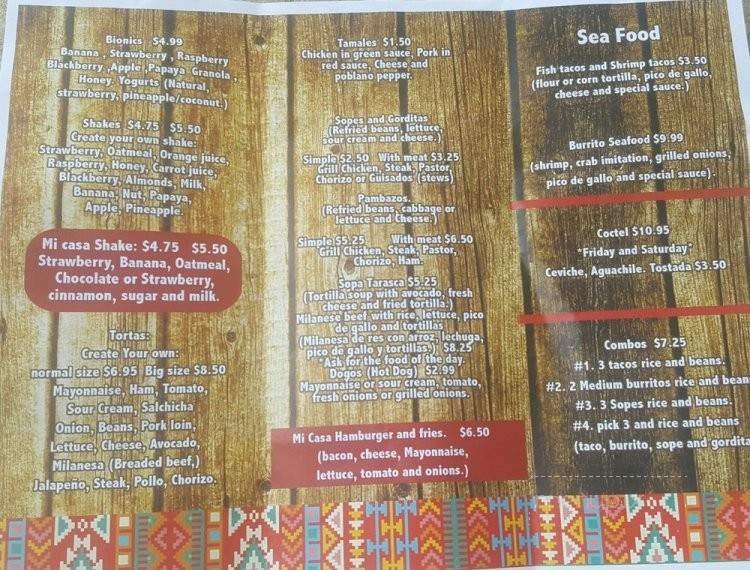 Bionics $4.99
Banana , Strawberry , Raspberry
Blackberry ,Apple ,Papaya Granola ,
Honey. Yogurts (Natural,
strawberry, pineapple/coconut.)
Shakes $4.75 $5.50
Create your own shake:
Strawberry, Oatmeal, Orange juice,
Raspberry, Honey, Carrot juice,
Blackberry, Almonds, Milk,
Banana, Nut, Papaya,
Apple, Pineapple.
Mi casa Shake: $4.75 $5.50
Strawberry, Banana, Oatmeal,
Chocolate or Strawberry,
cinnamon, sugar and milk.
Tortas:
Create Your own:
normal size $6.95 Big size $8.50
Mayonnaise, Ham, Tomato,
Sour Cream, Salchicha
Onion, Beans, Pork loin,
Lettuce, Cheese, Avocado,
Milanesa (Breaded beef,)
Jalapeño, Steak, Pollo, Chorizo.
Tamales $1.50
Chicken in green sauce, Pork in
red sauce, Cheese and
poblano pepper.
Sopes and Gorditas
(Refried beans, lettuce,
sour cream and cheese.)
Simple $2.50 With meat $3.25
Grill Chicken, Steak, Pastor,
Chorizo or Guisados (stews)
Pambazos.
(Refried beans, cabbage or
lettuce and Cheese.)
Simple $5.25 With meat $6.50
Grill Chicken, Steak, Pastor,
Chorizo, Ham.
Sopa Tarasca $5.25
(Tortilla soup with avocado, fresh
cheese and fried tortilla.)
Milanese beef with rice, lettuce, pico
de gallo and tortillas
(Milanesa de res con arroz, lechuga,
pico de gallo y tortillas.) $8.25
*Ask for the food of the day
Dogos (Hot Dog) $2.99
Mayonnaise or sour cream, tomato,
fresh onions or grilled onions.
Mi Casa Hamburger and fries. $6.50
(bacon, cheese, Mayonnaise,
lettuce, tomato and onions.)
Sea Food
Fish tacos and Shrimp tacos $3.50
(flour or corn tortilla, pico de gallo,
cheese and special sauce.)
Burrito Seafood $9.99
(shrimp, crab imitation, grilled onions,
pico de gallo and special sauce).
Coctel $10.95
*Friday and Saturday*
Ceviche, Aguachile. Tostada $3.50
Combos $7.25
#1. 3 tacos rice and beans.
#2. 2 Medium burritos rice and bean
#3. 3 Sopes rice and beans.
#4. pick 3 and rice and beans
(taco, burrito, sope and gordita